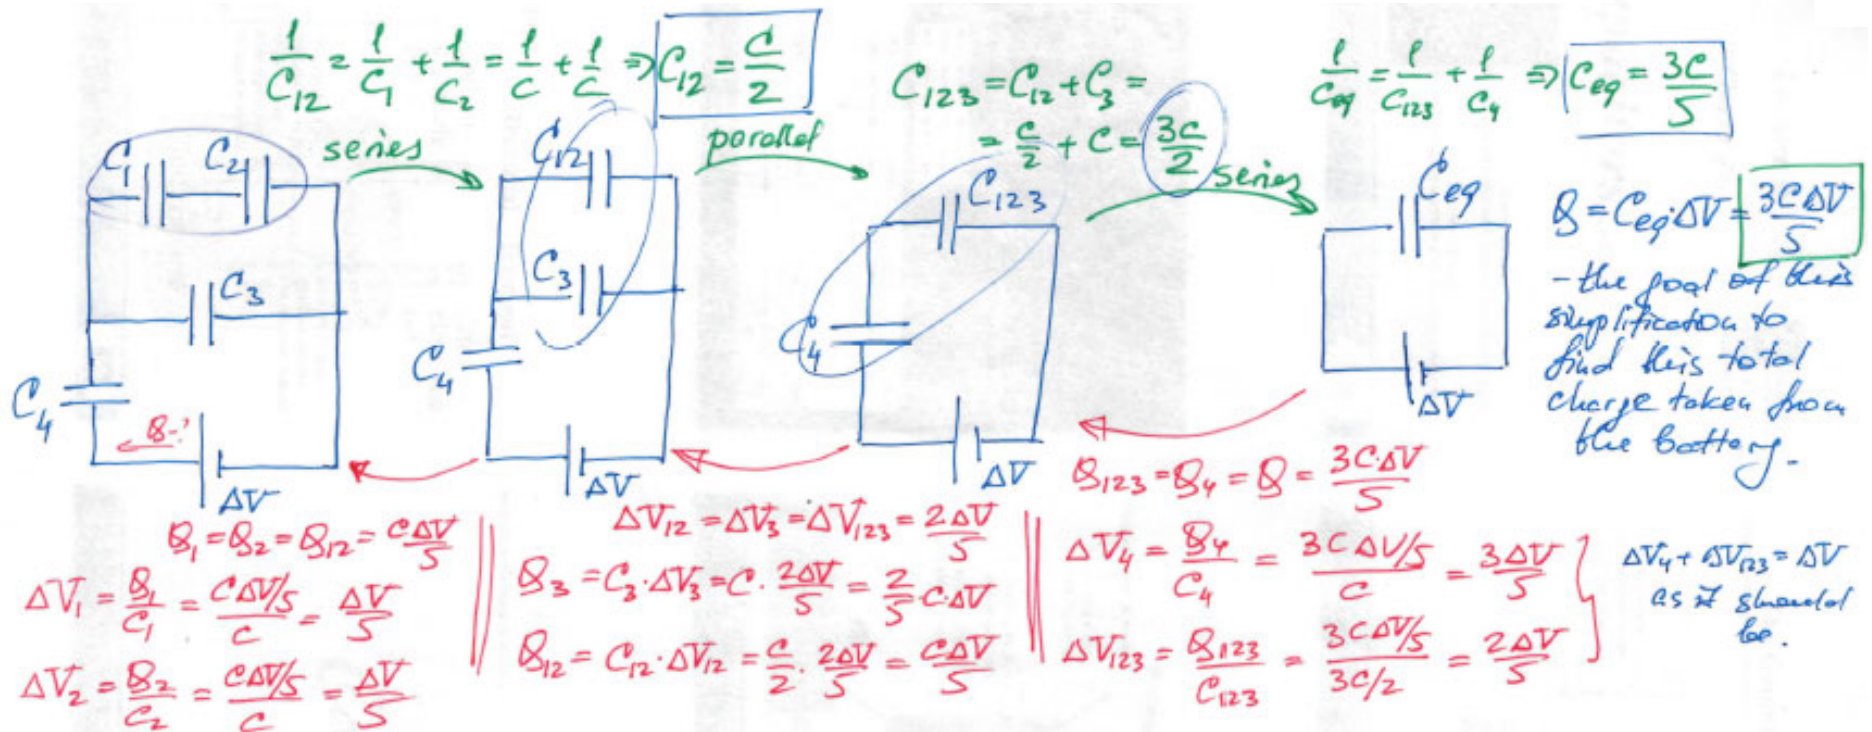 1/C₁₂ = 1/C₁ + 1/C₂ = 1/C + 1/C ⇒ C₁₂ = C/2
C₁₂₃ = C₁₂ + C₃ =
= C/2 + C = 3C/2
1/Ceq = 1/C₁₂₃ + 1/C₄ ⇒ Ceq = 3C/5
series
parallel
series
C₁ C₂
C₃
C₄
Q-?
ΔV
C₁₂
C₃
C₄
ΔV
C₁₂₃
C₄
ΔV
Ceq
ΔV
Q = Ceq·ΔV = 3CΔV/5
- the goal of this
simplification to
find this total
charge taken from
the battery.
Q₁₂₃ = Q₄ = Q = 3C·ΔV/5
ΔV₄ = Q₄/C₄ = 3CΔV/5/C = 3ΔV/5
ΔV₁₂₃ = Q₁₂₃/C₁₂₃ = 3CΔV/5/3C/2 = 2ΔV/5
ΔV₄ + ΔV₁₂₃ = ΔV
as it should
be.
ΔV₁₂ = ΔV₃ = ΔV₁₂₃ = 2ΔV/5
Q₃ = C₃·ΔV₃ = C·2ΔV/5 = 2/5·C·ΔV
Q₁₂ = C₁₂·ΔV₁₂ = C/2·2ΔV/5 = CΔV/5
Q₁ = Q₂ = Q₁₂ = CΔV/5
ΔV₁ = Q₁/C₁ = CΔV/5/C = ΔV/5
ΔV₂ = Q₂/C₂ = CΔV/5/C = ΔV/5